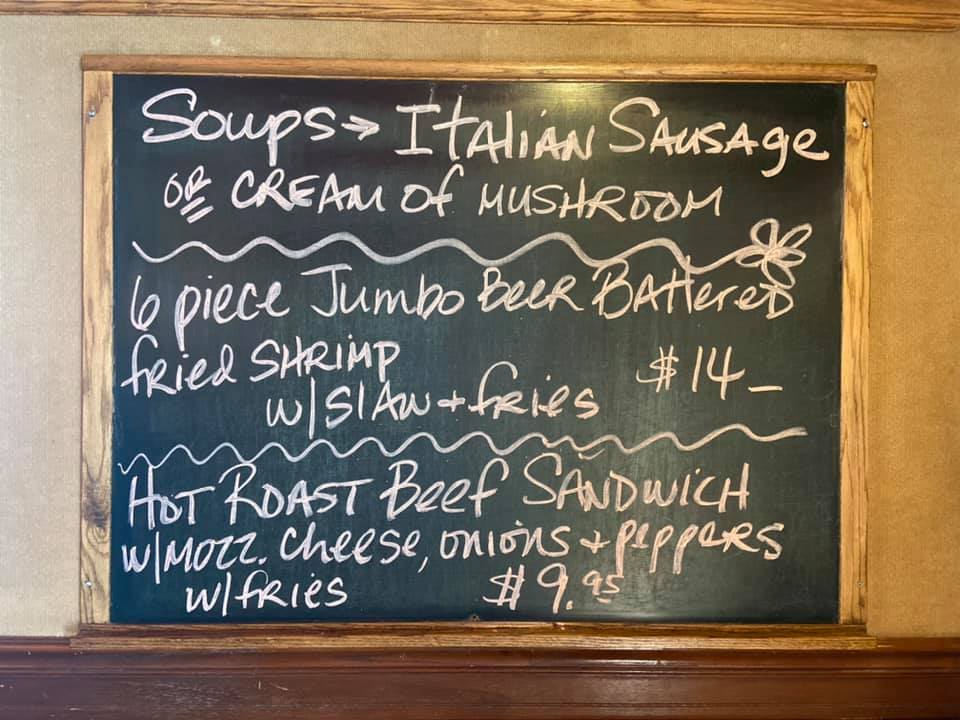 Soups → Italian Sausage
OR CREAM of MUSHROOM
6 piece Jumbo Beer Battered
fried SHRIMP $14_
w/ Slaw + fries
HOT ROAST Beef SANDWICH
w/ Mozz. Cheese, onions + peppers
w/ fries $9.95